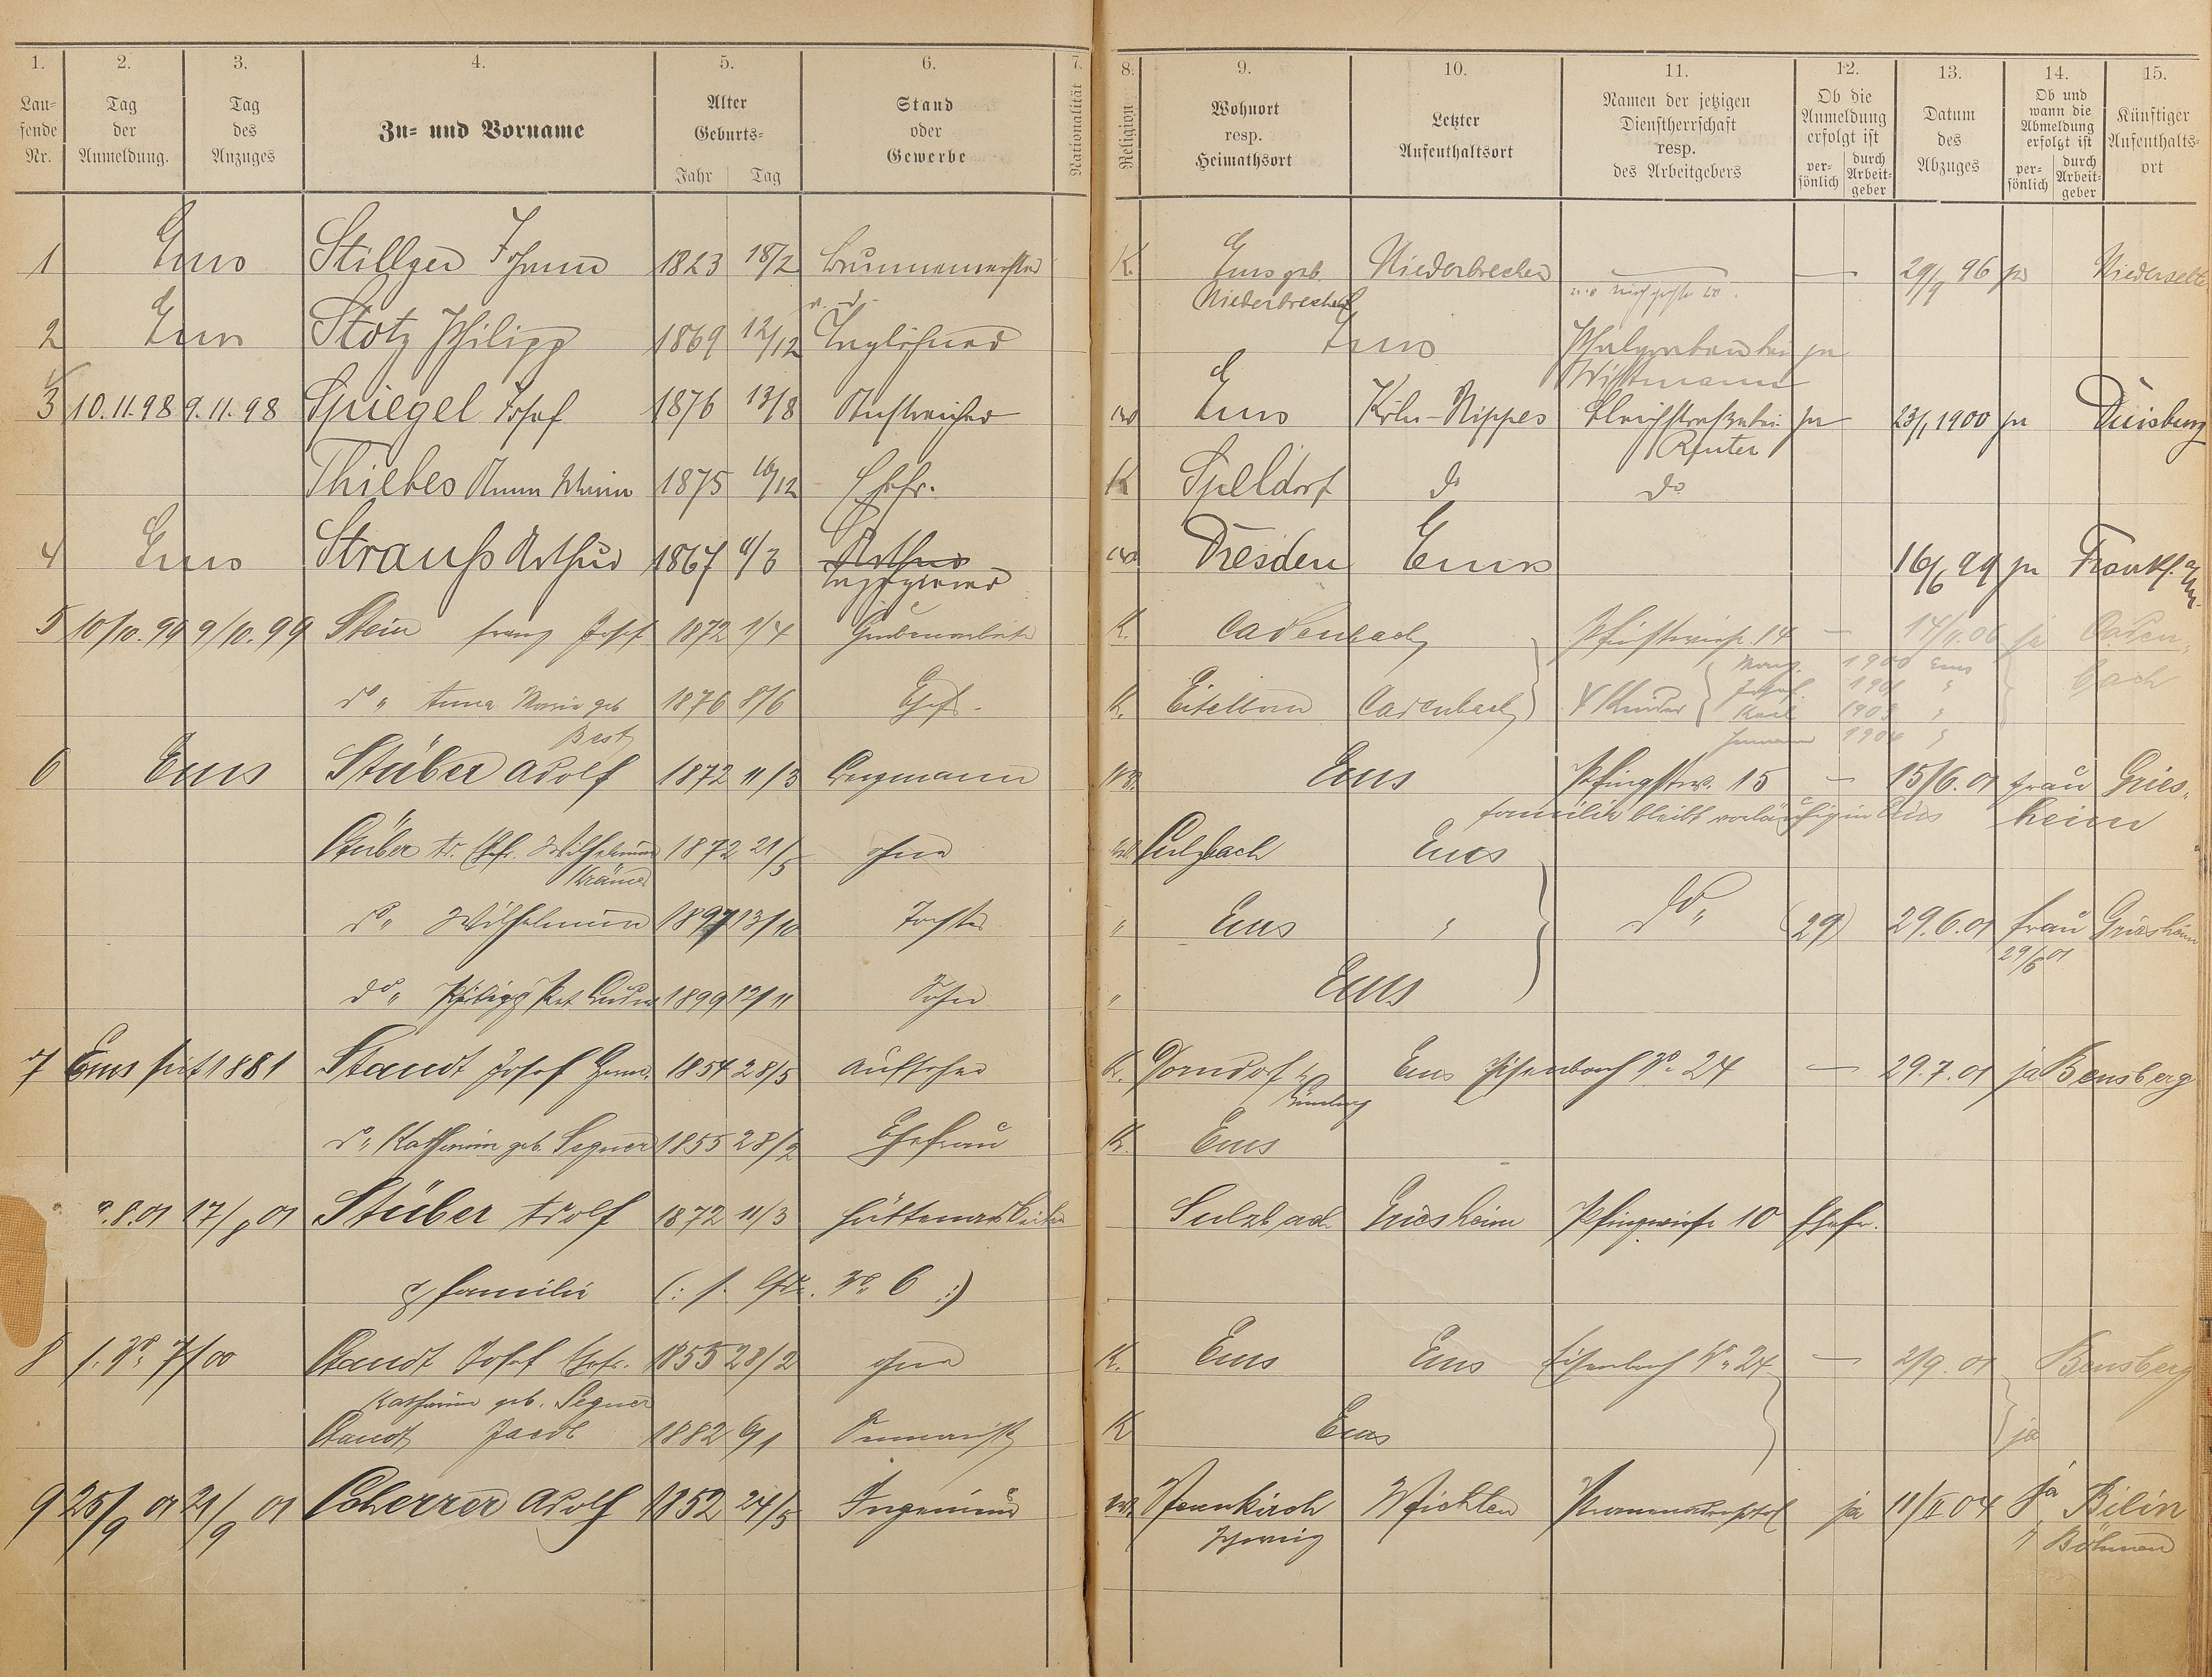 1. 2. 3. 4. 5. 6. 7. 8. 9. 10. 11. 12. 13. 14. 15.
Lau=fende Nr. Tag der Anmeldung. Tag des Anzuges Zu= und Vorname Alter Geburts= Jahr Tag Stand oder Gewerbe Nationalität Religion Wohnort resp. Heimathsort Letzter Aufenthaltsort Namen der jetzigen Dienstherrschaft resp. des Arbeitgebers Ob die Anmeldung erfolgt ist per=sönlich durch Arbeit=geber Datum des Abzuges Ob und wann die Abmeldung erfolgt ist per=sönlich durch Arbeit=geber Künftiger Aufenthalts=ort
1 Ems Stillger Johann 1823 18/2 Brunnenmeister K. Ems geb. Niederbrechen — 29/9 96 Niederselte
Niederbrechen
2 Ems Stotz Philipp 1869 12/12 Taglöhner Ems ja
Wittmann
3 10.11.98 9.11.98 Spiegel Josef 1876 13/8 Anstreicher Ems Köln-Nippes ja 23/1 1900 ja Duisburg
Reuter
Thiebes Anna Maria 1875 16/12 Ehefr. K Speldorf do do
4 Ems Strauß Arthur 1867 4/3 Arthur Dresden Ems 16/6 99 ja Frankf. a/M.
Ingenieur
5 10/10.99 9/10.99 Stein Franz Josef 1872 1/4 Grubenarbeiter K. Cadenbach Pfingstwiese 14 — 14/11.06 ja Caden=
do „ Anna Maria geb 1876 8/6 Ehefr. K. Eitelborn Cadenbach 4 Kinder 1900 Ems bach
Best Josef 1901 „
Karl 1903 „
1904 „
6 Ems Stüber Adolf 1872 11/3 Bergmann Ems Pfingstw. 15 — 15/6.01 Frau Gries=
Familie bleibt vorläufig in Ems heim
Stüber Ad. Ehefr. Wilhelmine 1872 21/5 ohne Sulzbach Ems
Krämer
do „ Wilhelmine 1897 13/10 Tochter „ Ems „ do „ (29) 29.6.01 Frau Griesheim
29/6 01
do „ Philipp 1899 12/11 Sohn „ Ems
7 Ems seit 1881 Staudt Josef 1854 28/5 Aufseher K. Dorndorf Ems Eisenbach No 24 — 29.7.01 ja Bensberg
Limburg
do „ Katharina geb. Segner 1855 28/2 Ehefrau K. Ems
.8.01 17/8 01 Stüber Adolf 1872 11/3 Hüttenarbeiter Sulzbach Griesheim Pfingstwiese 10 Ehefr.
Familie (: s. lfde. No 6 :)
8 s. No 7/00 Staudt Josef Ehefr. 1855 28/2 ohne K. Ems Ems Eisenbach No 24 — 2/9.01 Bensberg
Katharina geb. Segner
Staudt Jacob 1882 6/1 K Ems ja
9 25/9 01 21/9 01 Scherrer Adolf 1852 24/5 Ingenieur Neunkirch Wichten ja 11/II 04 ja Bilin
Schweiz Böhmen